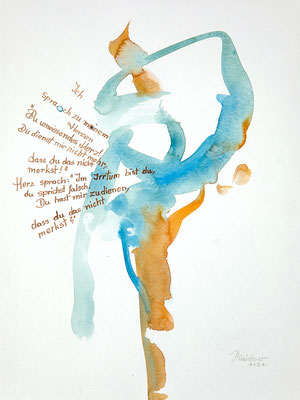 Ich
sprach zu meinem
Herzen
"Du unwissendes Herz!
Du dienst mir nicht mehr,
dass du das nicht
merkst!"
Herz sprach: "Im Irrtum bist du,
du sprichst falsch.
Du hast mir zu dienen,
dass du das nicht
merkst!"
2021.